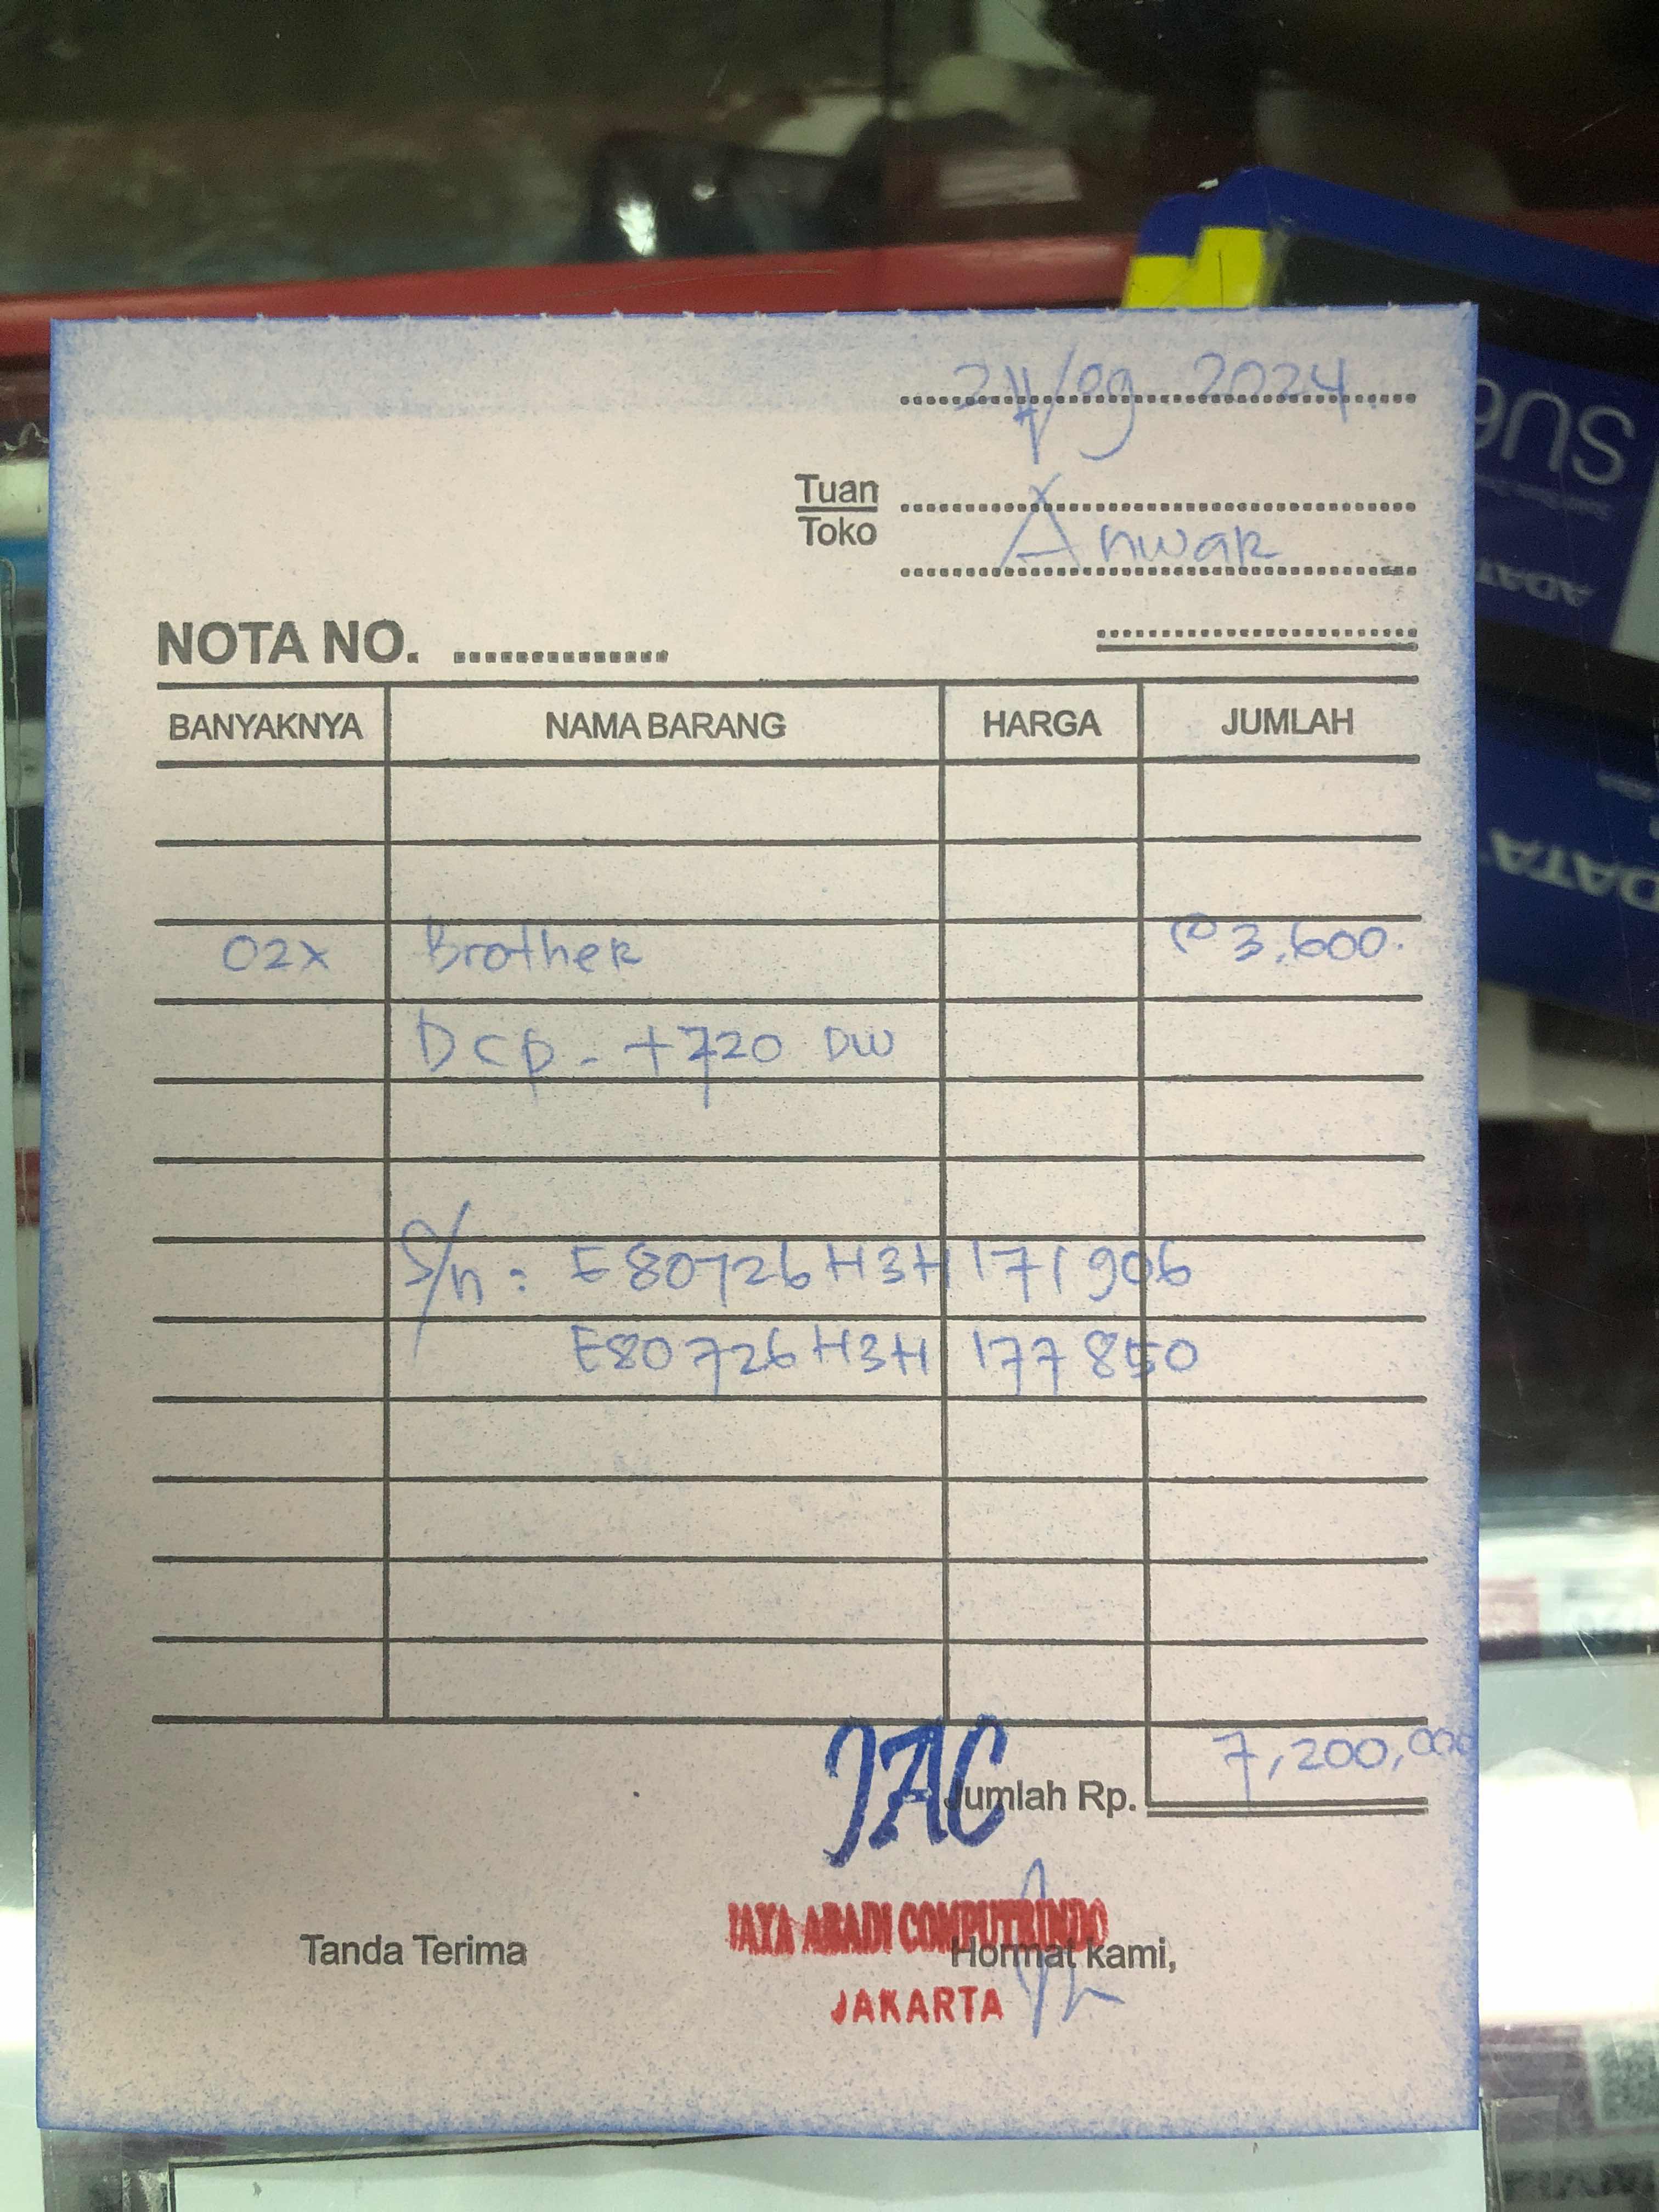 24/09 2024.
Tuan
Toko
Anwar
NOTA NO. ..............
BANYAKNYA NAMA BARANG HARGA JUMLAH
02x Brother @ 3.600.
Dcp - t720 DW
S/n : E80726H3H171906
E80726H3H177850
JAC
Jumlah Rp. 7,200,000
Tanda Terima
JAYA ABADI COMPUTRINDO
Hormat kami,
JAKARTA
SU6
ADATA
DATA